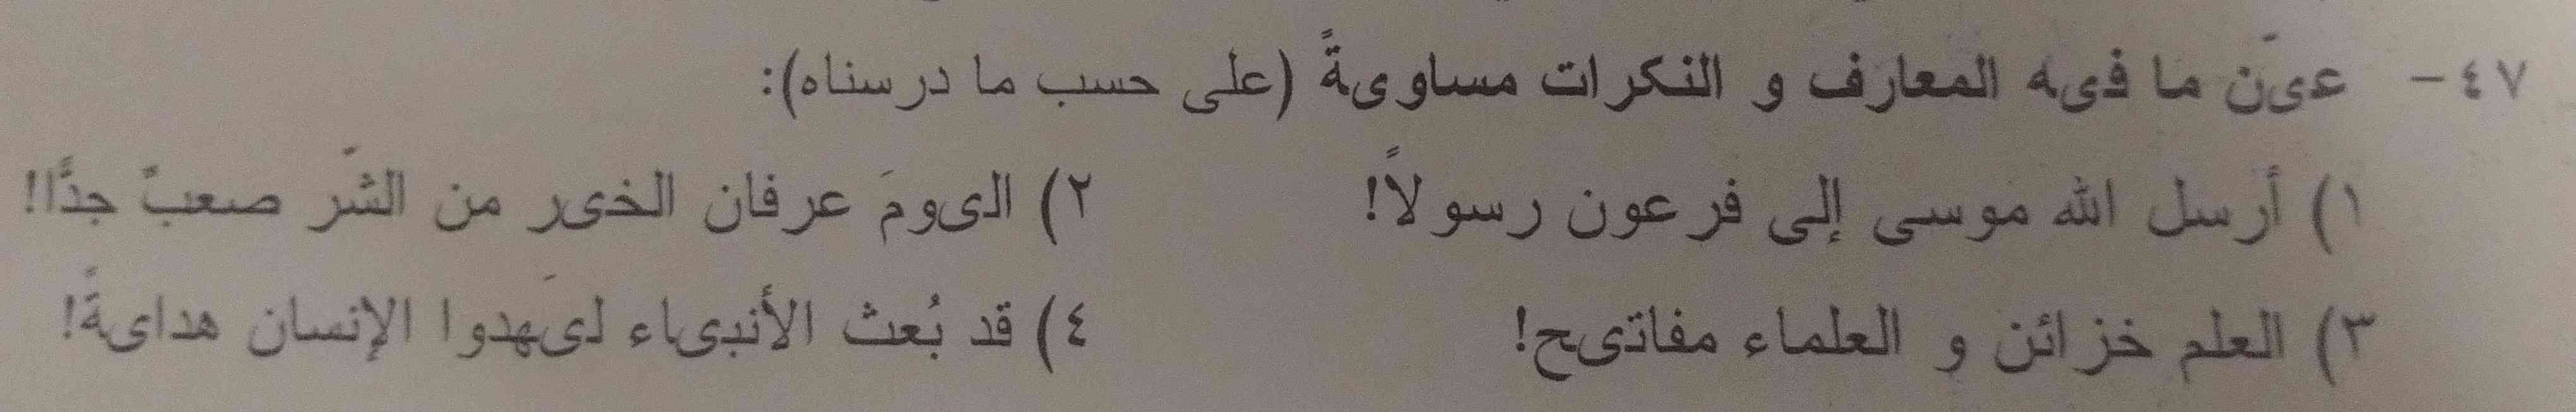 ٤٧- عیّن ما فیه المعارف و النکرات مساویةً (علی حسب ما درسناه):
١) أرسل الله موسی إلی فرعون رسولاً! ٢) الیومَ عرفان الخیر من الشّر صعبٌ جدًّا!
٣) العلم خزائن و العلماء مفاتیح! ٤) قد بُعث الأنبیاء لیَهدوا الإنسان هدایةً!